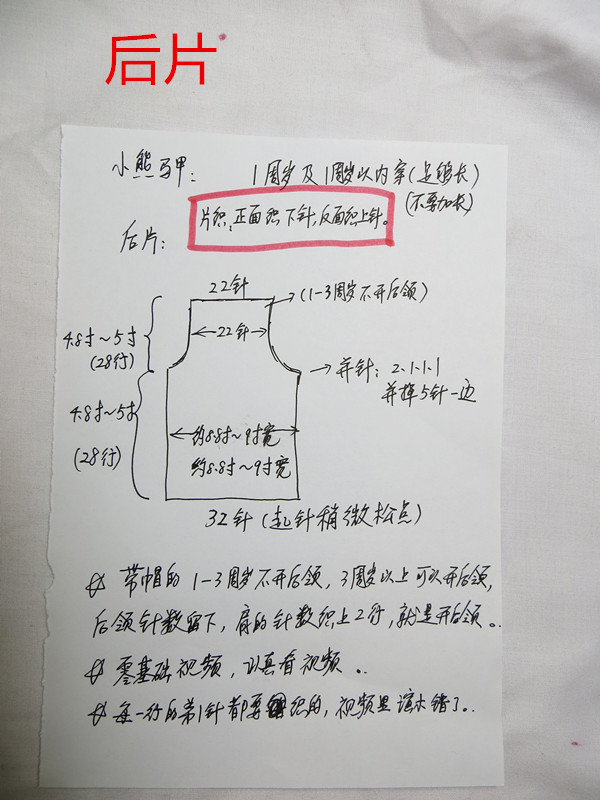 后片
小熊马甲: 1周岁及1周岁以内穿(足够长)
(不要加长)
片织,正面织下针,反面织上针。
后片:
22针
(1-3周岁不开后领)
22针
4.8寸~5寸
(28行)
并针: 2.1.1.1
并掉5针一边
4.8寸~5寸
(28行)
约8.8寸~9寸宽
约8.8寸~9寸宽
32针(起针稍微松点)
带帽的1-3周岁不开后领,3周岁以上可以开后领,
后领针数留下,肩的针数织上2行,就是开后领。
零基础视频,认真看视频。
每一行的第1针都要织的,视频里讲错了。